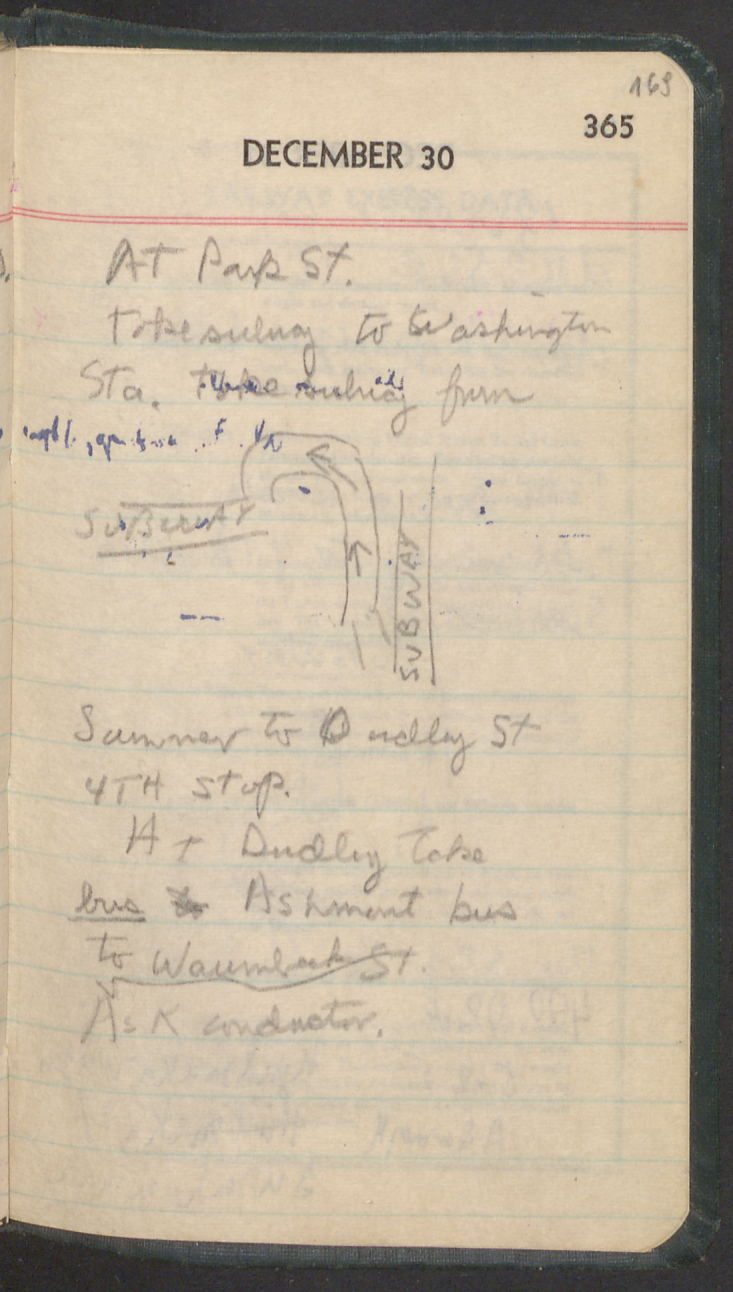 163
365
DECEMBER 30
At Park St.
Take subway to Washington
Sta. Take subway from
SUBWAY
SUBWAY
Summer to Dudley St
4TH stop.
At Dudley Take
bus Ashmont bus
to Waumbeck St.
Ask conductor.